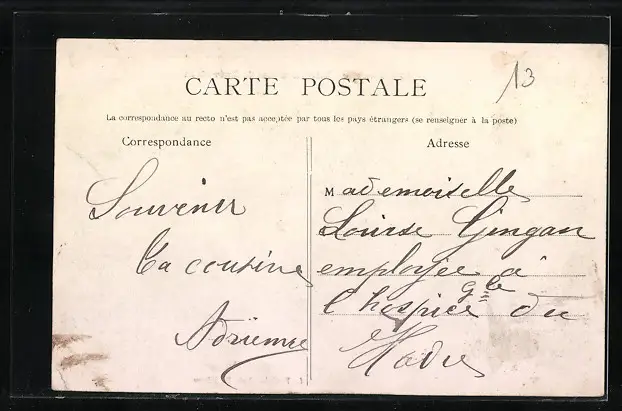 13
CARTE POSTALE
La correspondance au recto n'est pas acceptée par tous les pays étrangers (se renseigner à la poste)
Correspondance
Adresse
Souvenir
Ta cousine
Adrienne
Mademoiselle
Louise Gingan
employée à
l'hospice gle du